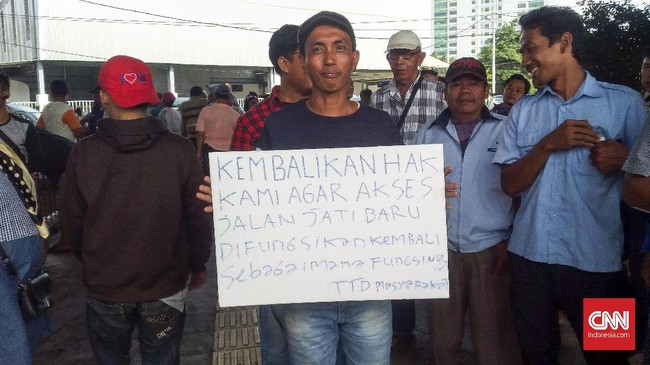 KEMBALIKAN HAK
KAMI AGAR AKSES
JALAN JATI BARU
DIFUNGSIKAN KEMBALI
SEBAGAIMANA FUNGSINYA
TTD MASYARAKAT
CNN
Indonesia.com